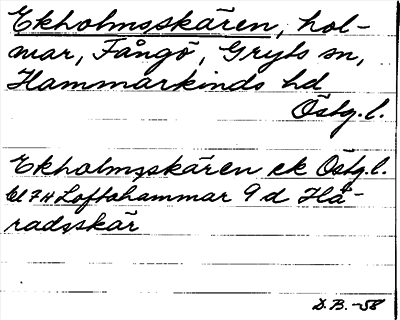 Ekholmsskären, hol-
mar, Fångö, Gryts sn,
Hammarkinds hd
Östg. l.
Ekholmsskären ek Östg. l.
bl 7H Loftahammar 9 d Hä-
radsskär
D.B. -58